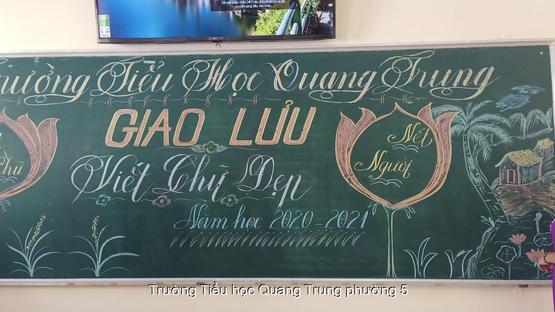 Trường Tiểu Học Quang Trung
GIAO LƯU
Viết Chữ Đẹp
Năm học 2020-2021
Chữ
Nét
Người
Trường Tiểu học Quang Trung phường 5